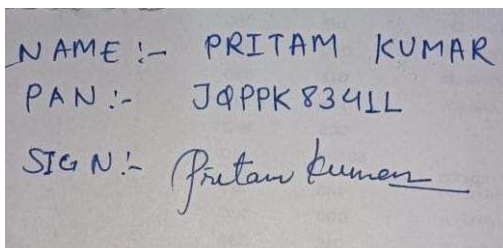 NAME :- PRITAM KUMAR
PAN :- JQPPK8341L
SIGN :- Pritam Kumar